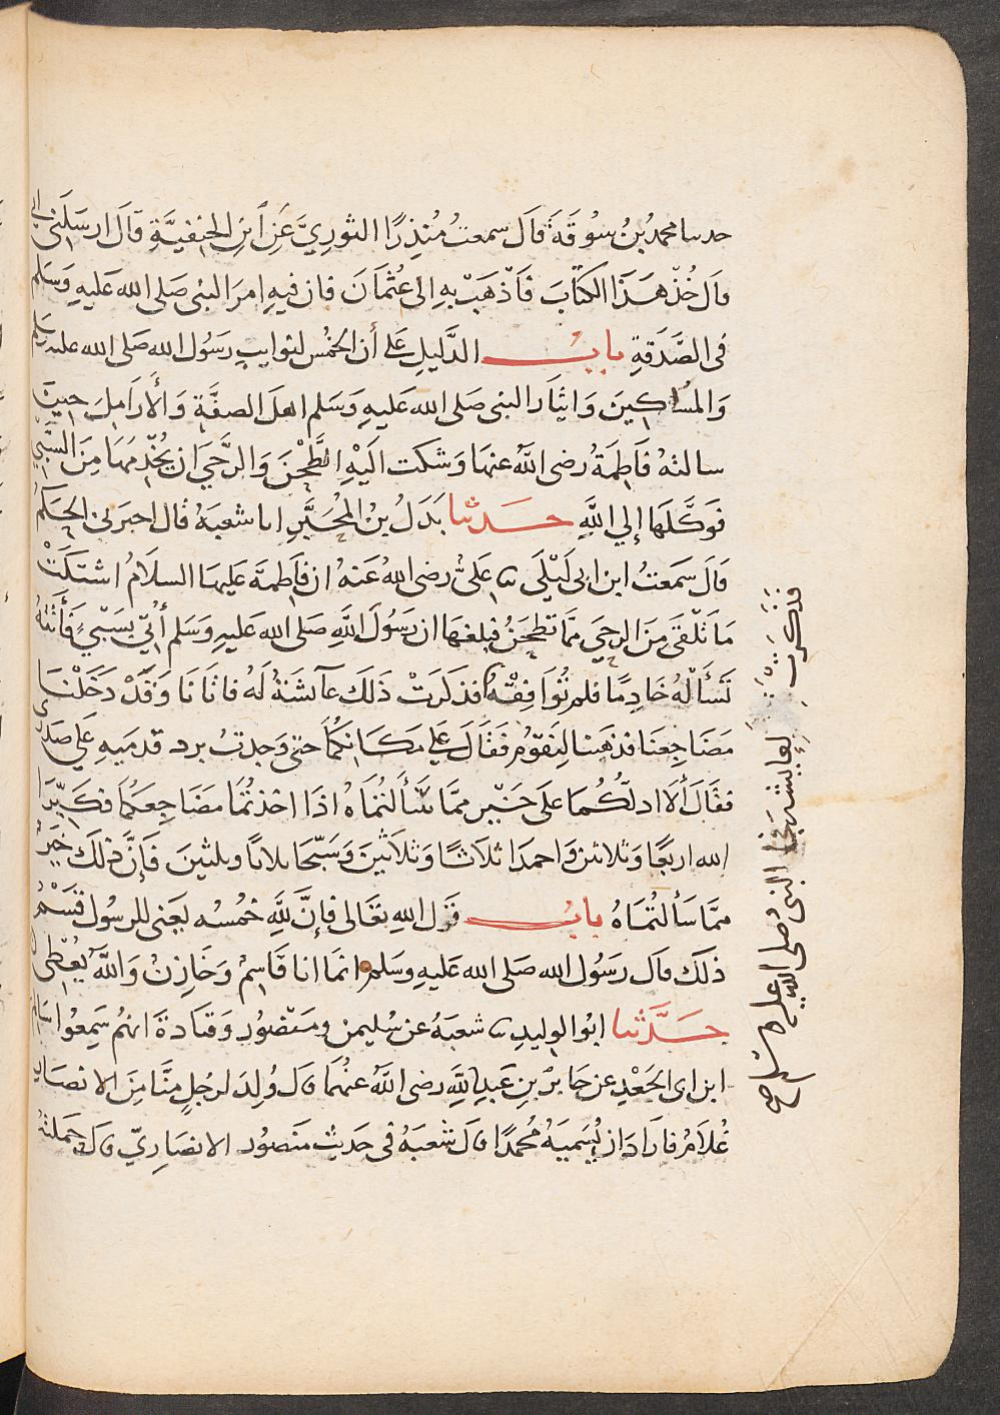 حدثنا محمد بن سُوقَةَ قَالَ سمعتُ مُنْذِرًا الثورِيَّ عَنِ ٱبنِ الحنفيَّةِ قَالَ ارسَلَنى ابى
قال خُذْ هَذَا الكتابَ فَاذْهَبْ بهِ الى عُثمَانَ فان فيهِ امرَ النبى صَلى الله عَليهِ وَسَلم
فى الصَّدَقةِ باب الدَّليلِ عَلى أن الخُمُس لنوايبِ رَسُول الله صَلى الله عليه وسلم
وَالمسَاكِينَ وَايثارِ النبى صَلى الله عَليهِ وَسَلم اهلَ الصفَّةِ وَالأَرَامِلَ حينَ
سالتهُ فَاطِمَةُ رضى اللهُ عنها وَشكت الَيْهِ الطَّحْنَ وَالرَّحَى ان يُخْدِمَهَا مِنَ السَّبْىِ
فَوَكَّلَها إلى اللهِ حدثنا بَدَلُ بنُ المُحَبَّرِ انا شعبَةُ قال اخبرَنى الحَكَمُ
قَالَ سَمعتُ ابن ابى لَيْلَى ثنا عَلىٌّ رضى اللهُ عَنهُ ان فَاطمةَ عَليهَا السلاَمُ اشتكَتْ
مَا تَلْقَى مِنَ الرحَى ممَّا تطحَنُ فبلغهَا ان رَسُولَ اللهِ صَلى الله عَليهِ وَسَلم أُتِىَ بسَبْىٍ فَأَتَتْهُ
تَسْأَلُهُ خَادِمًا فلم تُوَافِقْهُ فذكرَتْ ذَلكَ عآئشةُ لَهُ فاتَانَا وَقَدْ دَخَلْنَا
مَضَاجِعنَا فذهبنا لِنَقوُم فقَالَ عَلى مكَانِكُمَا حتى وَجدتُ برد قدمَيهِ عَلى صَدرى
فقَالَ أَلَا ادلُّكُمَا عَلَى خَيْر ممَّا سَأَلتُمَاهُ اذَا اخذتُمَا مضَاجعَكُمَا فكَبِّرَا
الله اربعًا وَثلاثين وَاحمدَا ثلاَثًا وَثَلاَثينَ وَسَبّحَا ثلاثًا وثلثينَ فَإِنَّ ذلكَ خَيرٌ
ممَّا سَألتُمَاهُ بابُ قَوْل اللهِ تعَالى فإنَّ للهِ خمُسه يَعنى للرسُول قَسْمُ
ذلكَ قال رَسُول الله صَلى الله عَليهِ وسَلم انمَا انا قَاسِمٌ وَخَازِنٌ وَاللهُ يُعْطِى
حَدَّثنا ابُوا لوليدِ ثنا شعبَةُ عن سُليمن ومَنصُور وَقتادةَ انهُم سَمعُوا سَالم
ابن ابى الجَعْدِ عن جَابرِ بنِ عَبدِ اللهِ رضى اللهُ عنهُمَا قال وُلِدَ لرجُلٍ مِنَّا مِنَ الانصَارِ
غُلاَمٌ فارَادَ ان يُسَميَهُ مُحمدًا قال شعبَةُ فى حَديث منصُور الانصَارِىّ قال حَملتُهُ
فذكرت لعايشة فجا النبى صلى الله عليه وسلم صح